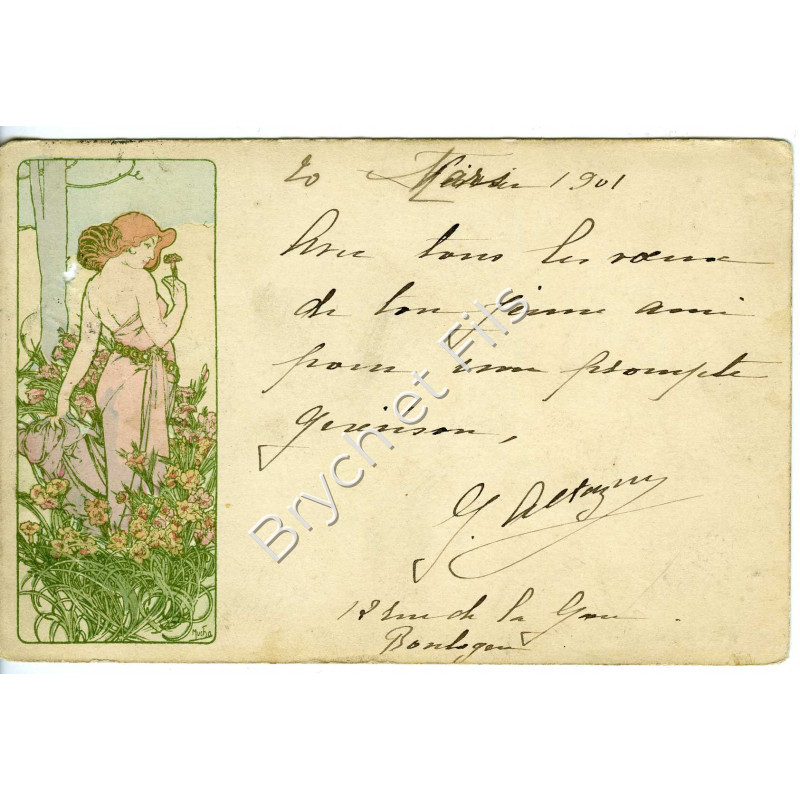 20 Mars 1901
Avec tous les vœux
de ton jeune ami
pour une prompte
guérison,
G.
18 rue de la
Boulogne
Mucha
Brych et Fils